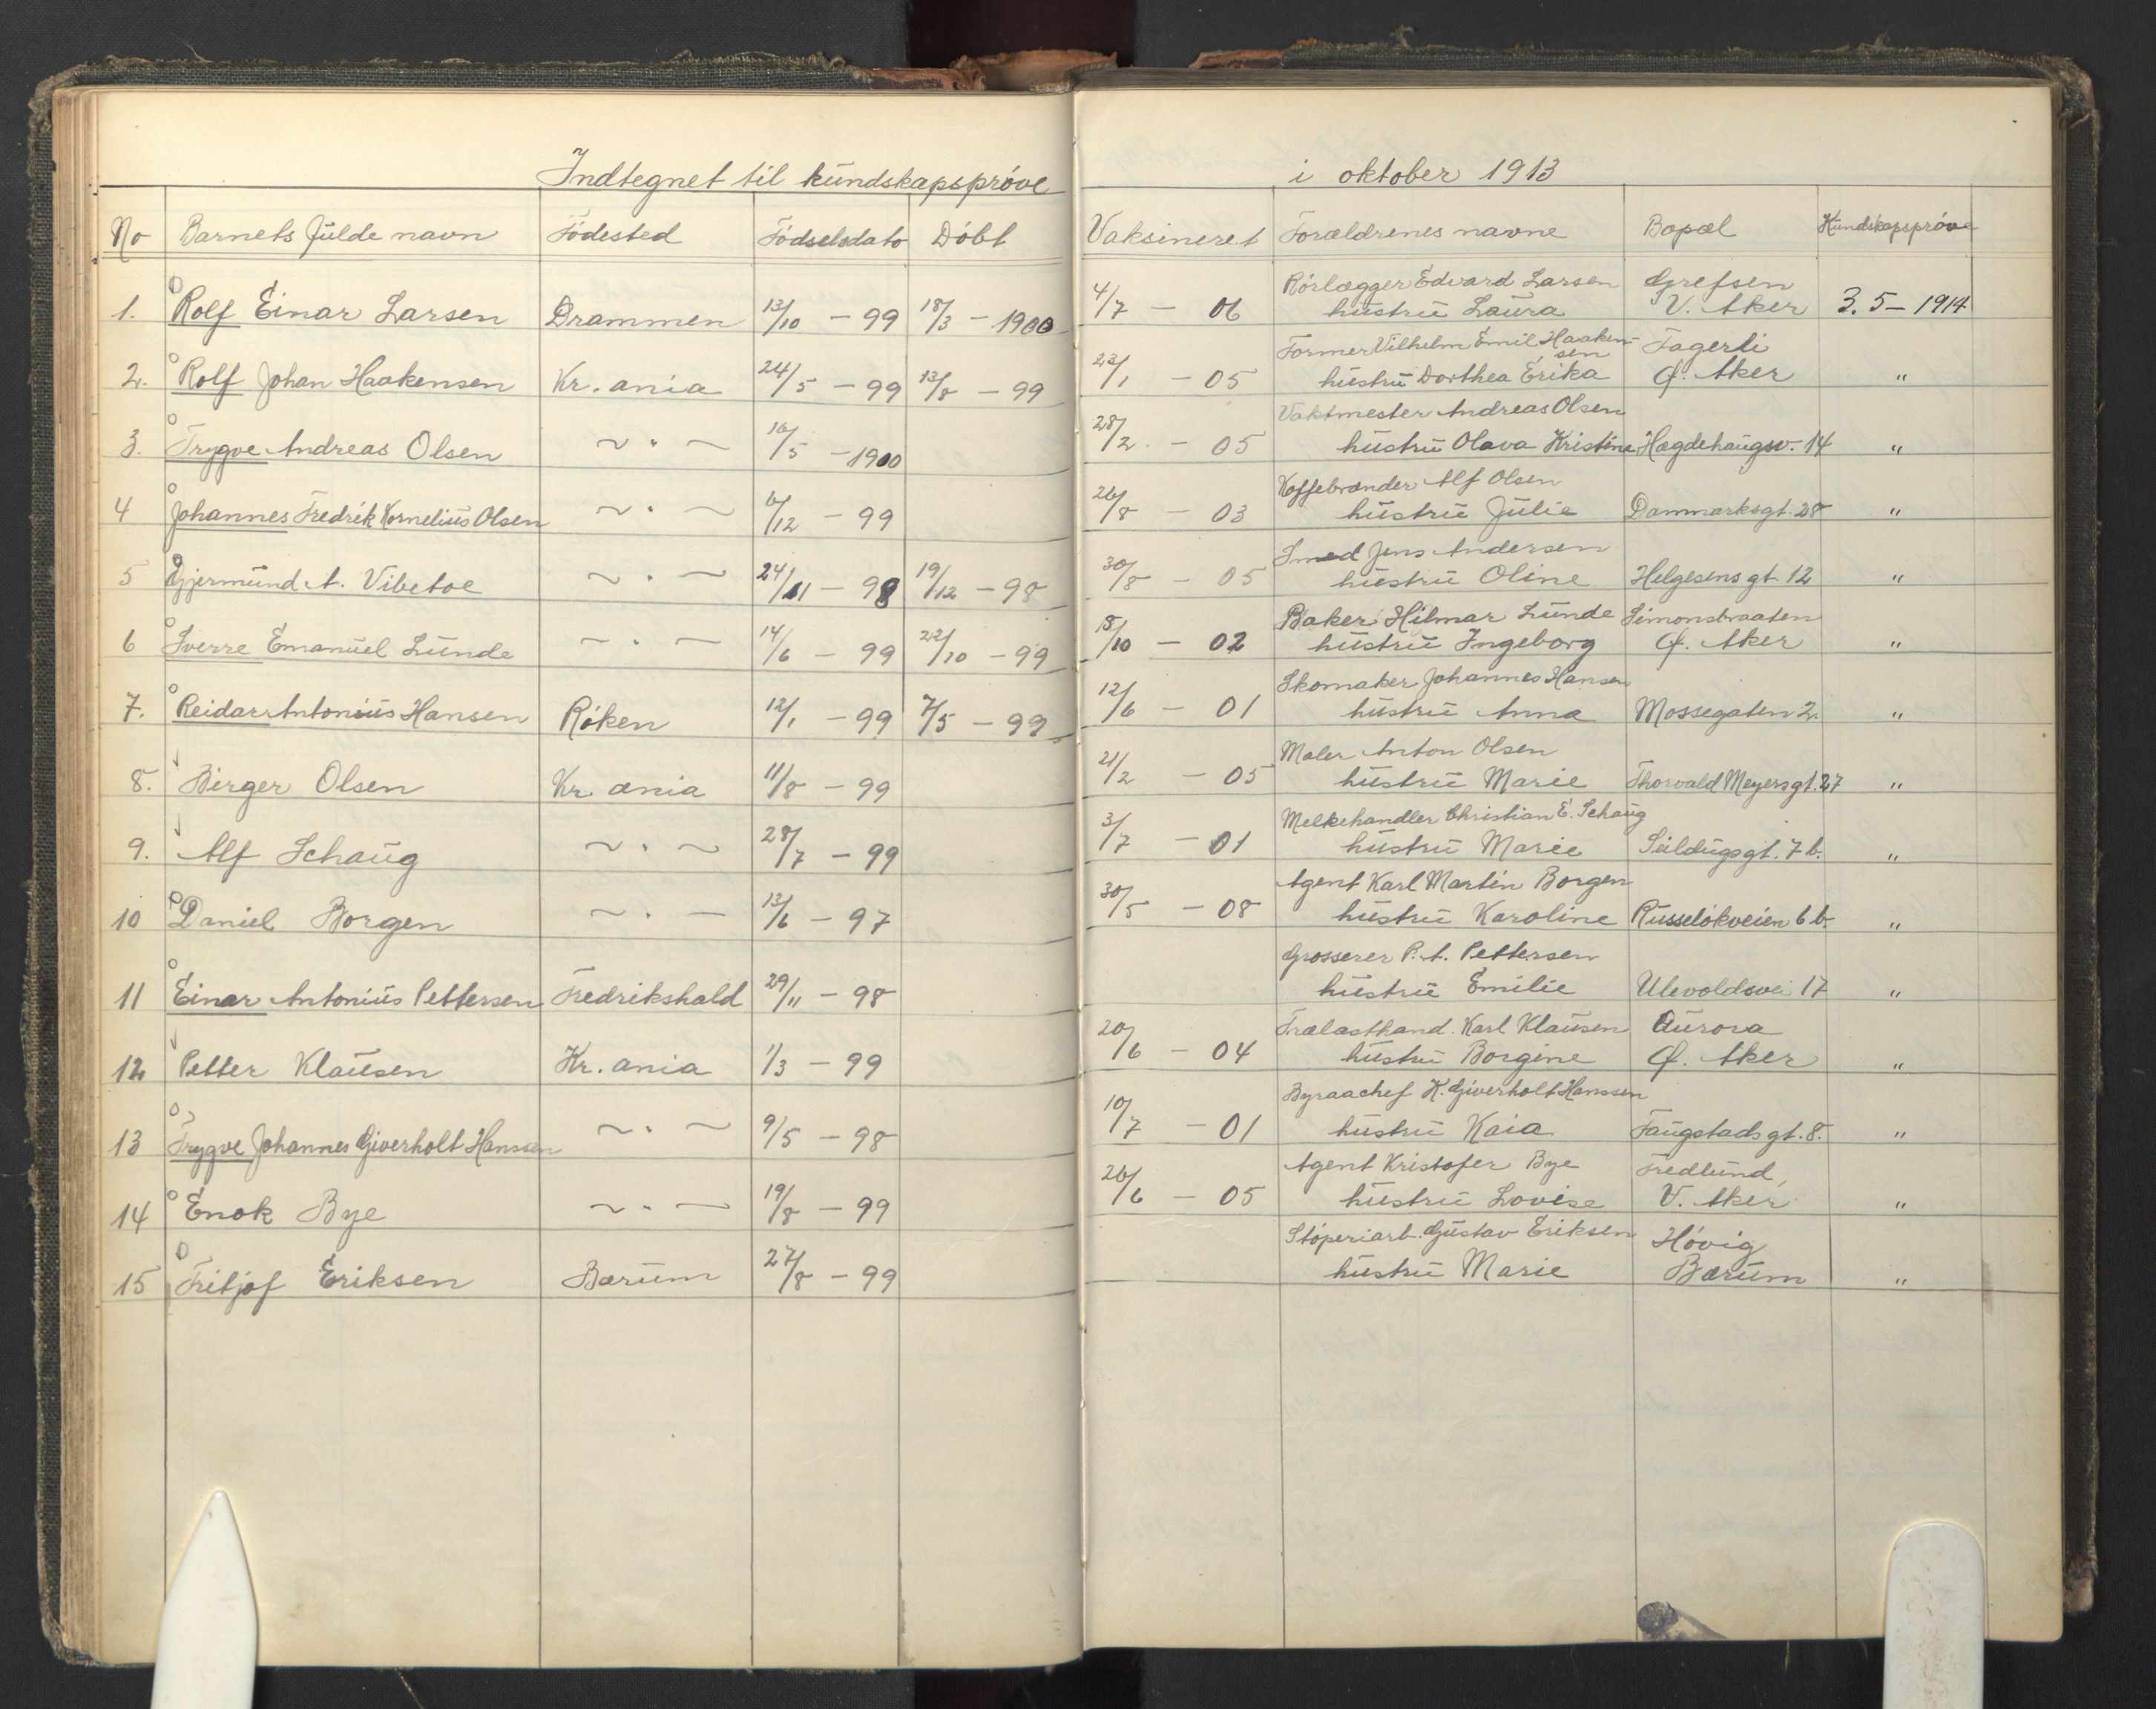 Indtegnet til kundskapsprøve i oktober 1913
No Barnets fulde navn Födested Födselsdato Döbt Vaksineret Forældrenes navne Bopæl Kundskapsprøve
Rörlægger Edvard Larsen Grefsen
1. Rolf Einar Larsen Drammen 13/10 - 99 18/3 - 1900 4/7 - 06 hustru Laura V. Aker 3. 5 - 1914
Former Vilhelm Emil Haaken- Fagerli
sen
2. Rolf Johan Haakensen Kr. ania 24/5 - 99 13/8 - 99 23/1 - 05 hustru Dorthea Erika Ö. Aker "
Vaktmester Andreas Olsen
3. Trygve Andreas Olsen ~ " ~ 16/5 - 1900 28/2 - 05 hustru Olava Kristine Hægdehaugsv. 14 "
Kaffebrænder Alf Olsen
4 Johannes Fredrik Kornelius Olsen ~ " ~ 6/12 - 99 26/8 - 03 hustru Julie Danmarksgt. 28 "
Smed Jens Andersen
5 Gjermund A. Vibetoe ~ " ~ 24/11 - 98 19/12 - 98 30/8 - 05 hustru Oline Helgesens gt. 12 "
Baker Hilmar Lunde Simonsbraaten
6 Sverre Emanuel Lunde ~ " ~ 14/6 - 99 22/10 - 99 18/10 - 02 hustru Ingeborg Ö. Aker "
Skomaker Johannes Hansen
7. Reidar Antonius Hansen Röken 12/1 - 99 7/5 - 99 12/6 - 01 hustru Anna Mossegaten 2. "
Maler Anton Olsen
8. Birger Olsen Kr. ania 11/8 - 99 21/2 - 05 hustru Marie Thorvald Meyersgt. 27 "
Melkehandler Christian E. Schaug
9. Alf Schaug ~ " ~ 28/7 - 99 3/7 - 01 hustru Marie Seildugsgt. 7 b. "
Agent Karl Martin Borgen
10 Daniel Borgen ~ " ~ 13/6 - 97 30/5 - 08 hustru Karoline Russelökveien 6 b. "
Grosserer P. A. Pettersen
11 Einar Antonius Pettersen Fredrikshald 29/11 - 98 hustru Emilie Ulevoldsvei 17 "
Trælasthand. Karl Klausen Aurora
12 Petter Klausen Kr. ania 1/3 - 99 20/6 - 04 hustru Borgine Ö. Aker "
Byraachef K. Giverholt Hanssen
13 Trygve Johannes Giverholt Hanssen ~ " ~ 9/5 - 98 10/7 - 01 hustru Kaia Faugstads gt. 8. "
Agent Kristofer Bye Fredlund,
14 Enok Bye ~ " ~ 19/8 - 99 26/6 - 05 hustru Lovise V. Aker "
Stöperiarb. Gustav Eriksen Hövig
15 Fritjof Eriksen Bærum 27/8 - 99 hustru Marie Bærum "